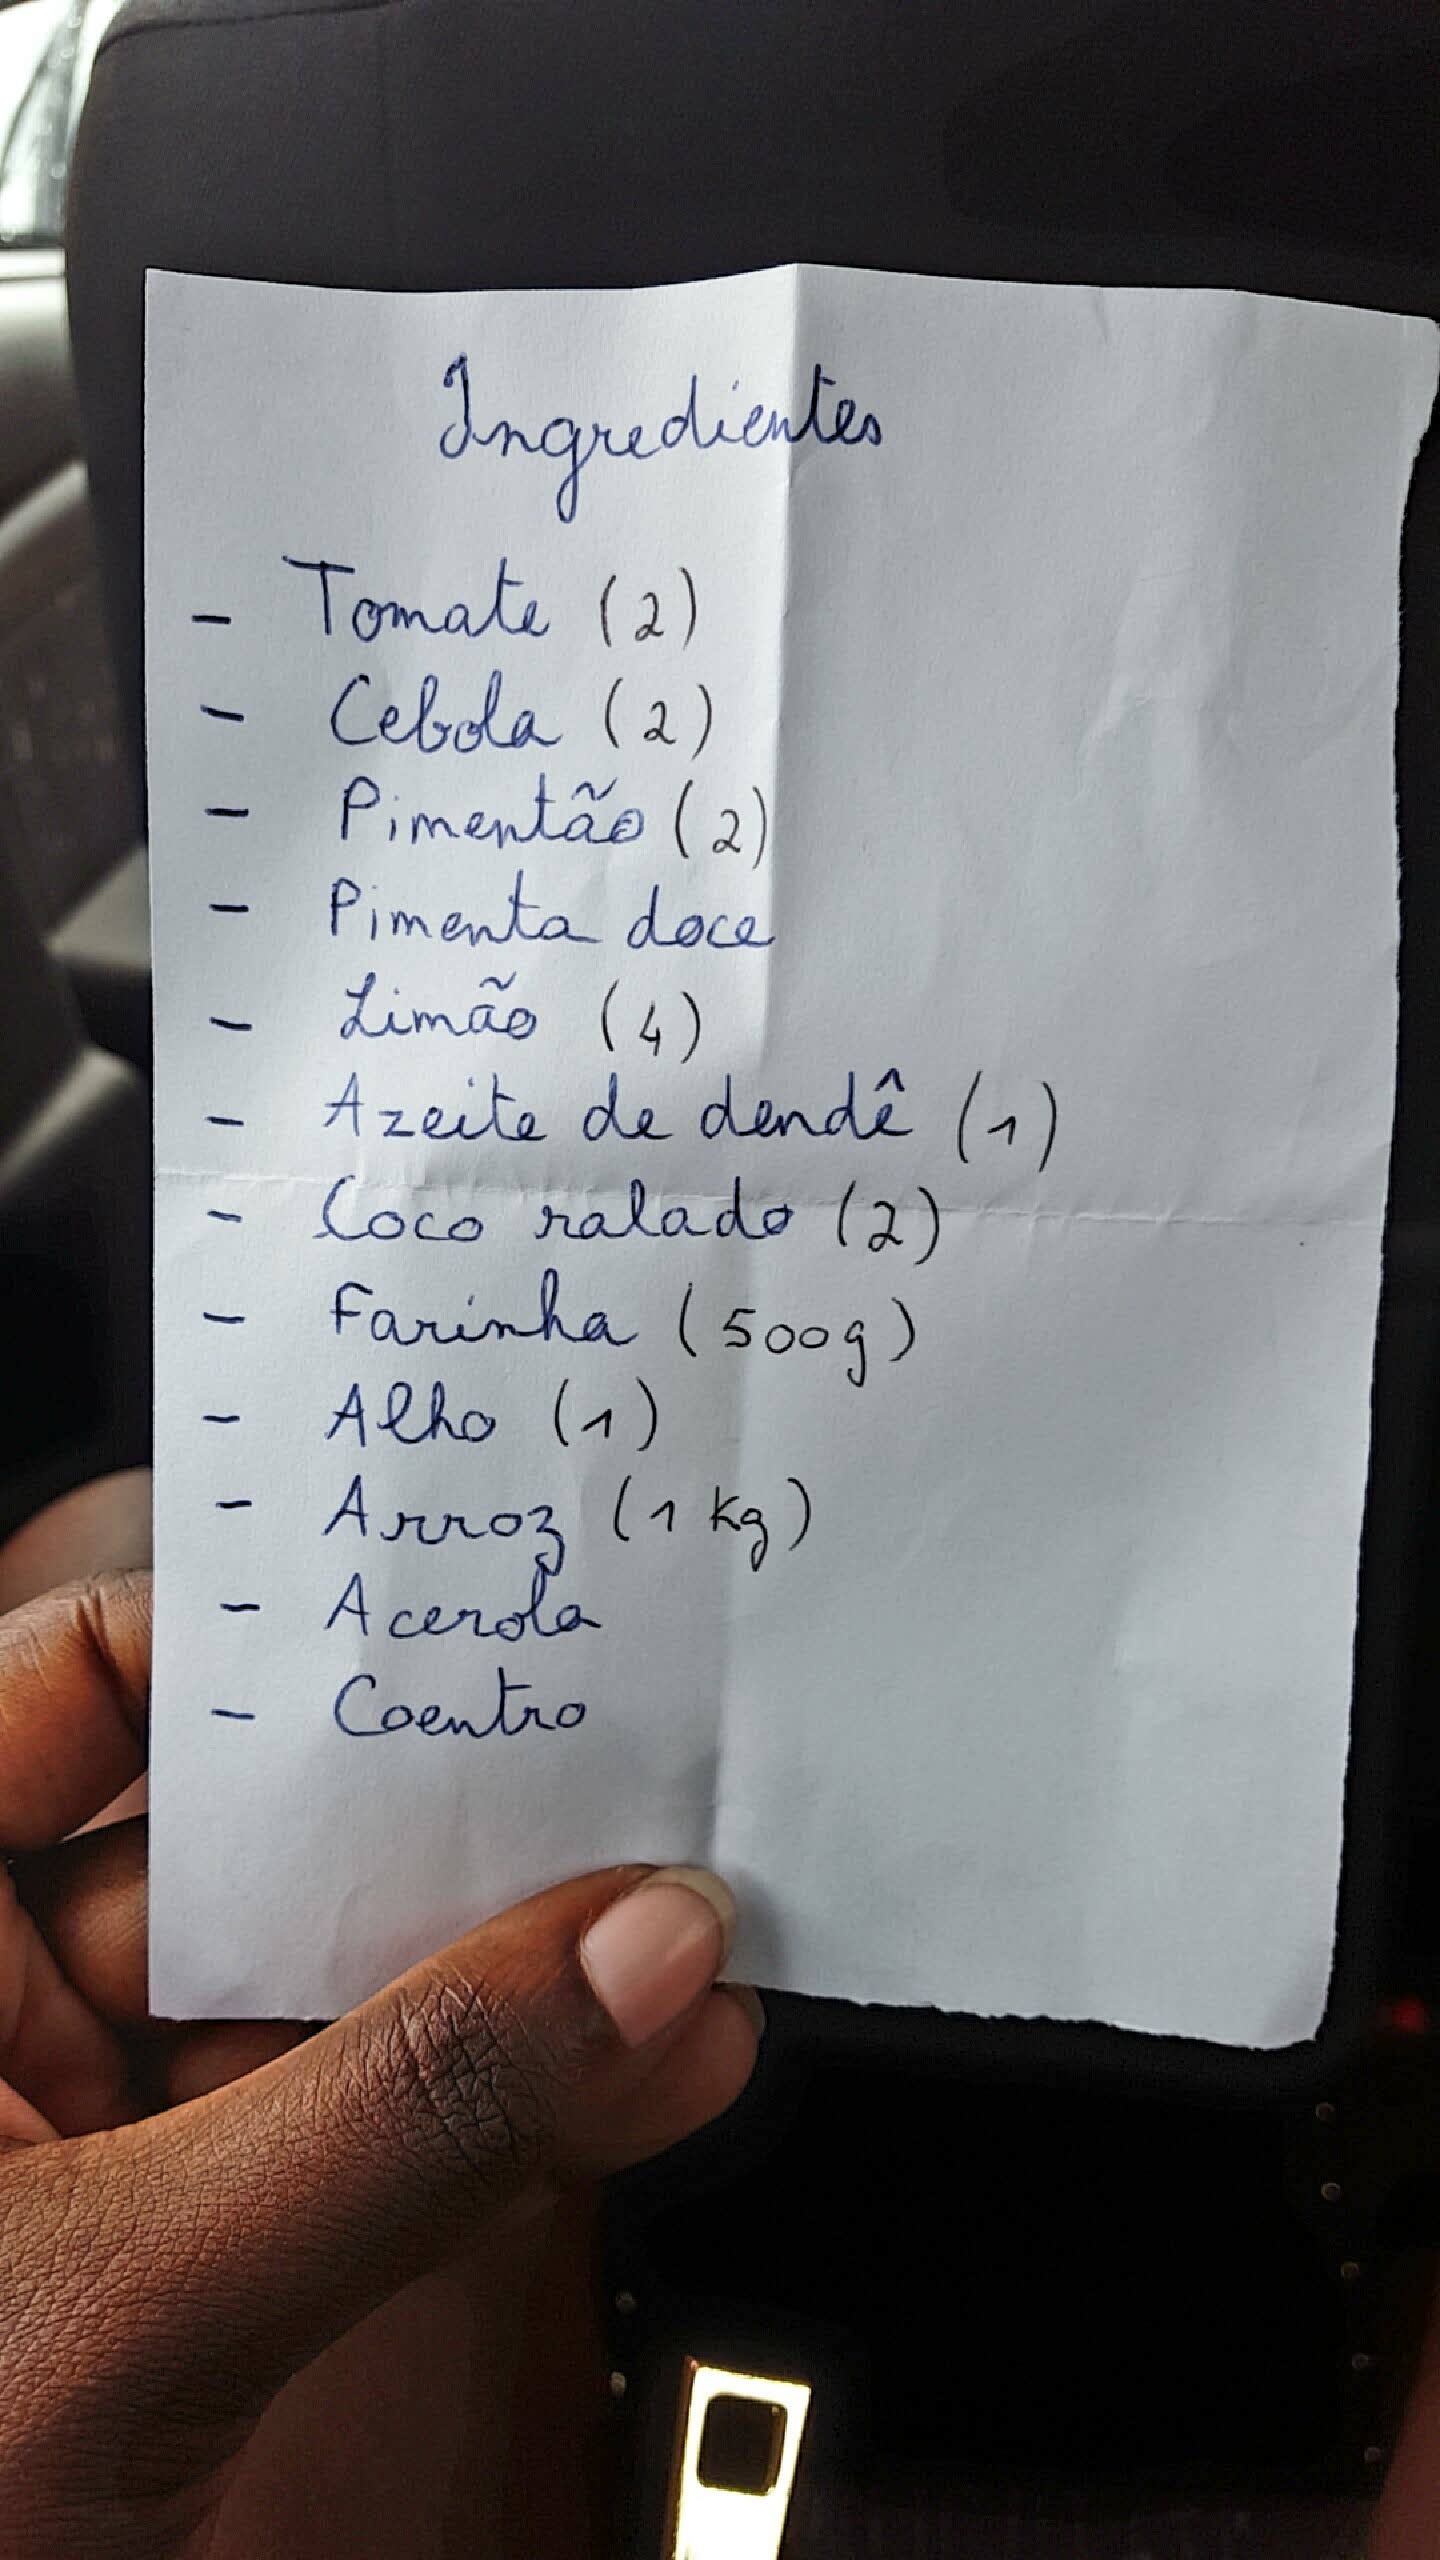 Ingredientes
- Tomate (2)
- Cebola (2)
- Pimentão (2)
- Pimenta doce
- Limão (4)
- Azeite de dendê (1)
- Coco ralado (2)
- Farinha (500g)
- Alho (1)
- Arroz (1 kg)
- Acerola
- Coentro